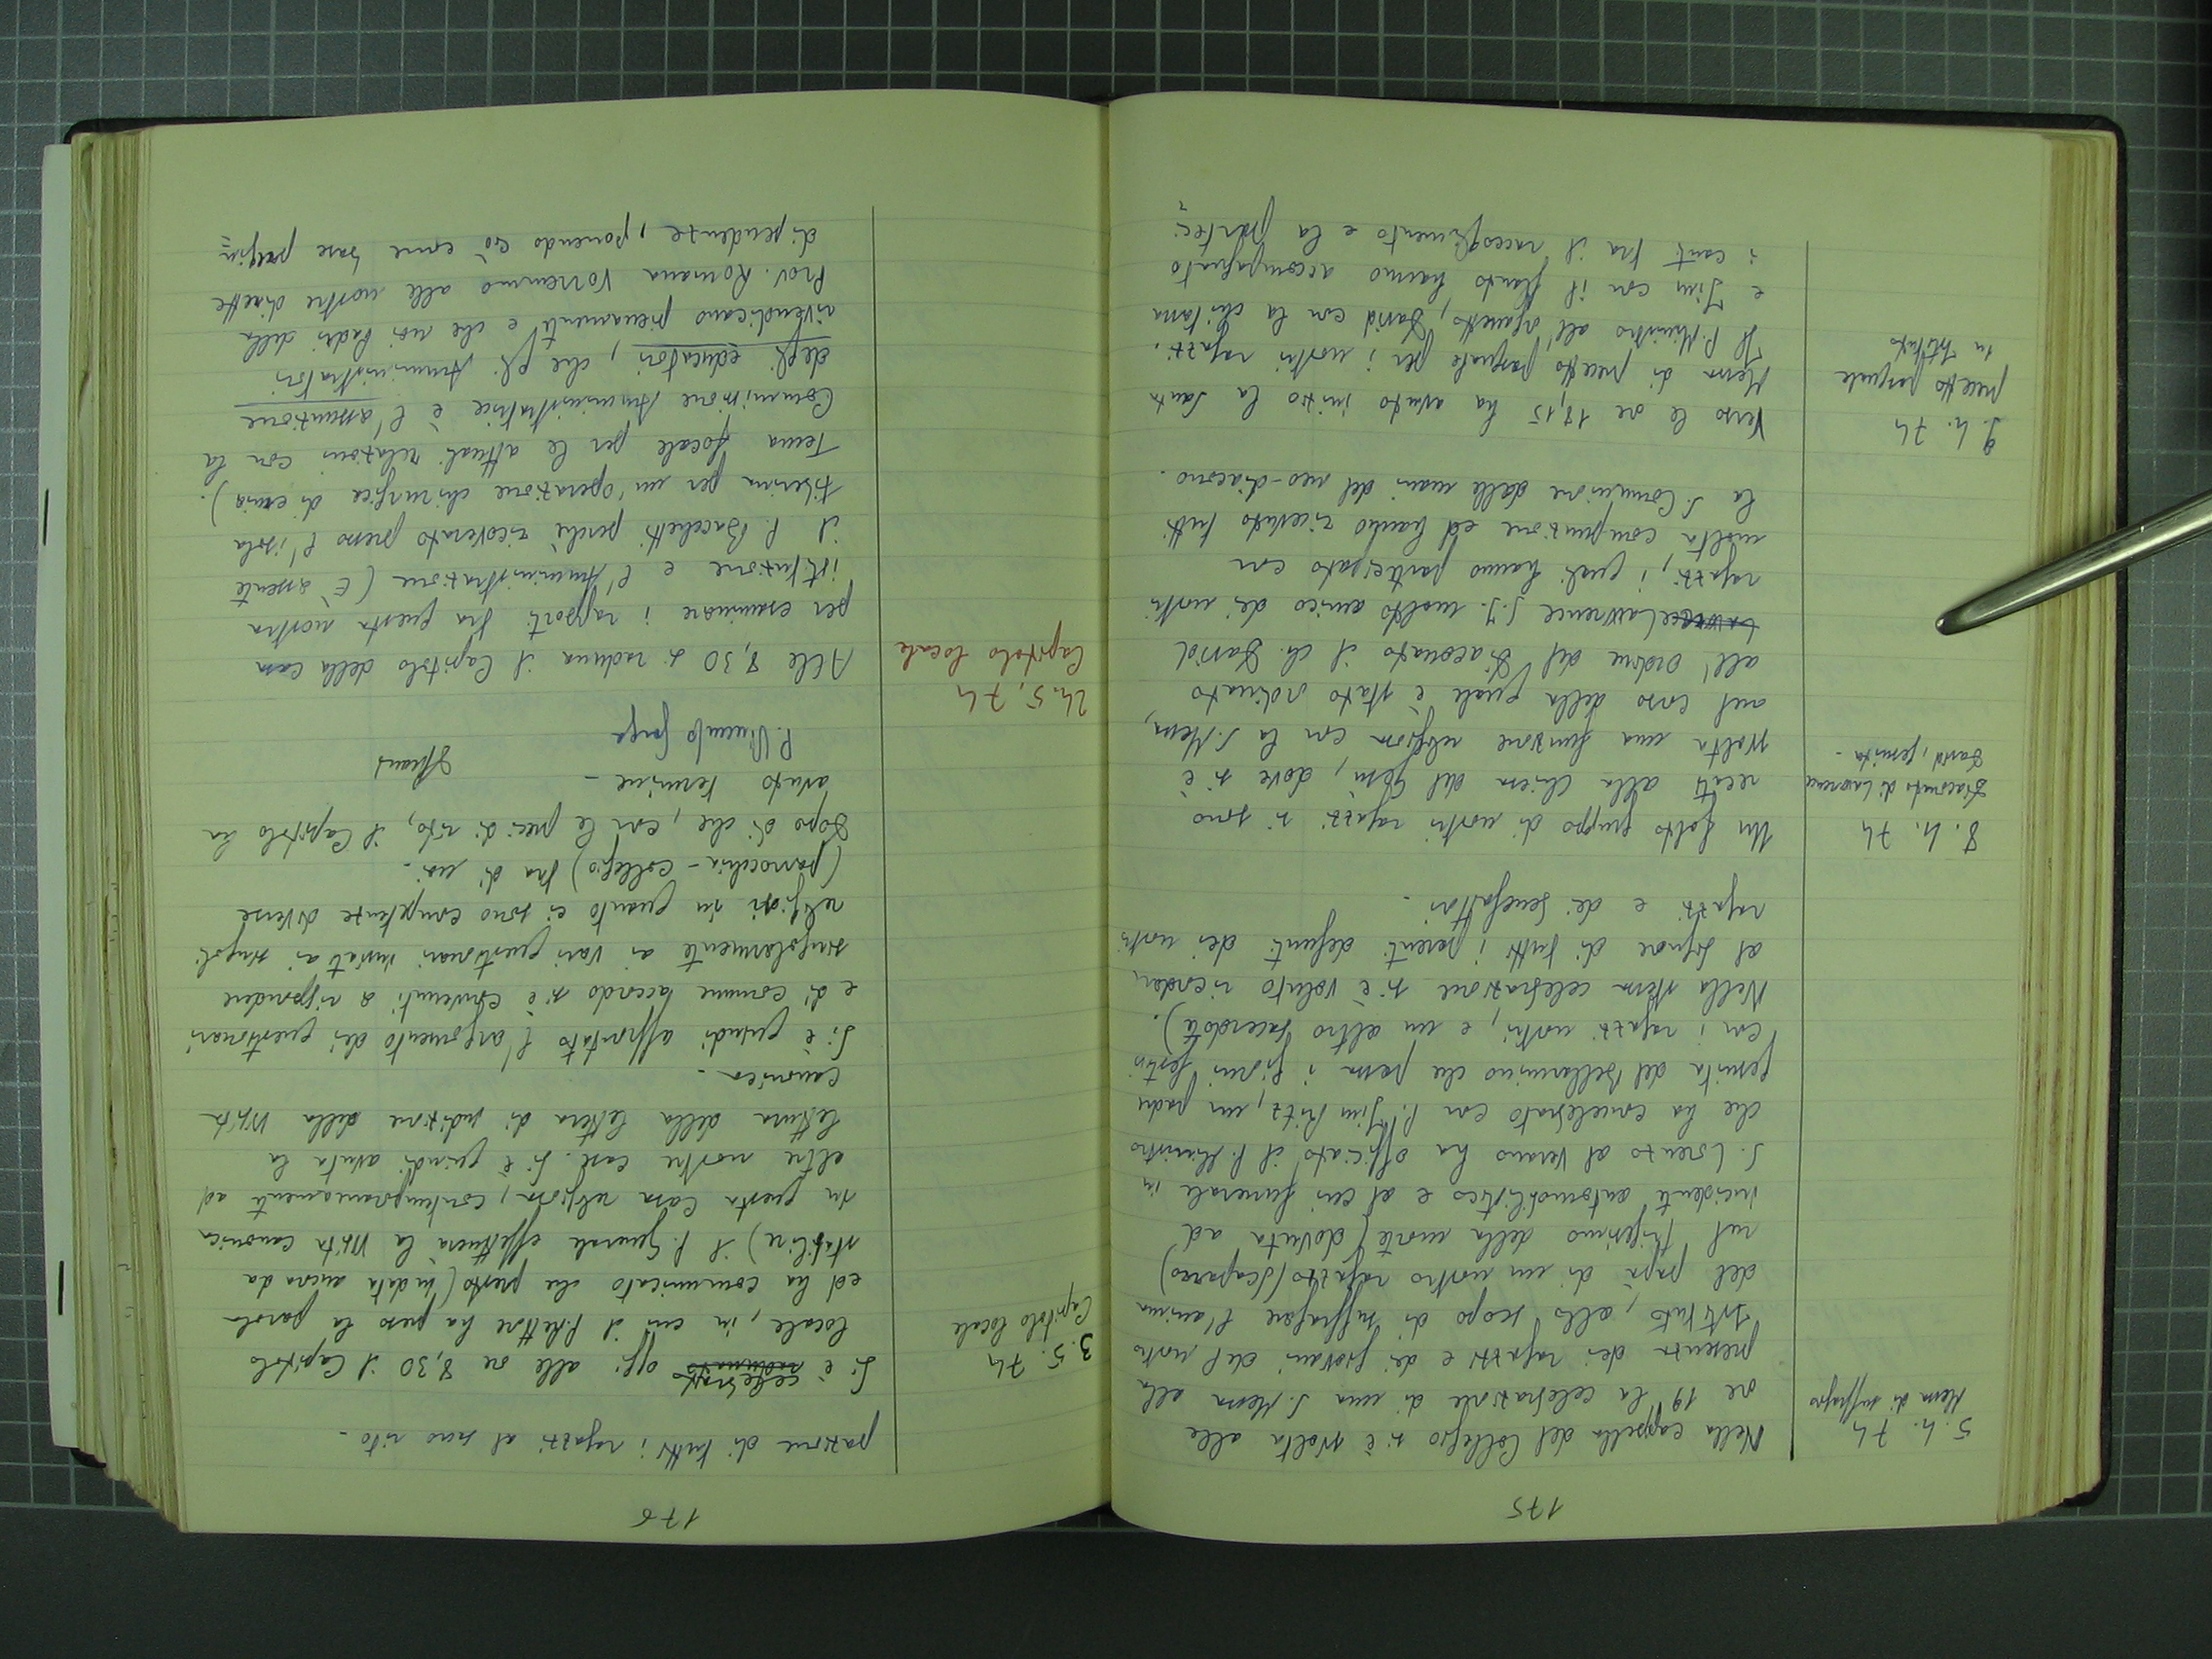 175
5.4.74
Messa di suffragio
Nella cappella del Collegio si è svolta alle
ore 19 la celebrazione di una S. Messa alla
presenza dei ragazzi e dei giovani del nostro
Istituto, allo scopo di suffragare l'anima
del papà di un nostro ragazzo (Scaparro)
nel trigesimo della morte (dovuta ad
incidente automobilistico e al cui funerale in
S. Lorenzo al Verano ha officiato il P. Ministro
che ha concelebrato con P. Jim Fitz, un padre
gesuita del Bellarmino che passa i giorni festivi
con i ragazzi nostri, e un altro Sacerdote).
Nella stessa celebrazione si è voluto ricordare
al Signore di tutti i parenti defunti dei nostri
ragazzi e dei benefattori.
8.4.74
Diaconato di Lawrence
David, gesuita.
Un folto gruppo di nostri ragazzi si sono
recati alla Chiesa del Gesù, dove si è
svolta una funzione religiosa con la S. Messa,
nel corso della quale è stato ordinato
all'ordine del Diaconato il ch. David
Lawrence S.J. molto amico dei nostri
ragazzi, i quali hanno partecipato con
molta compunzione ed hanno ricevuto tutti
la S. Comunione dalle mani del neo-diacono.
9.4.74
precetto pasquale
in Istituto
Verso le ore 18,15 ha avuto inizio la Santa
Messa di precetto pasquale per i nostri ragazzi.
Il P. Ministro all'organetto, David con la chitarra
e Jim con il flauto hanno accompagnato
i canti fra il raccoglimento e la parteci
176
pazione di tutti i ragazzi al sacro rito.
3.5.74
Capitolo locale
Si è celebrato radunato oggi alle ore 8,30 il Capitolo
locale, in cui il P. Rettore ha preso la parola
ed ha comunicato che presto (in data ancora da
stabilire) il P. Generale effettuerà la Visita canonica
in questa Casa religiosa, contemporaneamente ad
altre nostre case. Si è quindi avuta la
lettura della lettera di indizione della Visita
canonica.
Si è quindi affrontato l'argomento dei questionari
e di comune accordo si è convenuti a rispondere
singolarmente ai vari questionari inviati ai singoli
religiosi in quanto ci sono competenze diverse
(parrocchia - collegio) fra di noi.
Dopo di che, con le preci di rito, il Capitolo ha
avuto termine.
P. Vincenzo Gorga
24.5.74
Capitolo locale
Alle 8,30 si raduna il Capitolo della Casa
per esaminare i rapporti fra questa nostra
istituzione e l'Amministrazione (È assente
il P. Bacchetti perché ricoverato presso l'isola
tiberina per un'operazione chirurgica di ernia).
Tema focale per le attuali relazioni con la
Commissione Amministratrice è l'assunzione
degli educatori, che gli Amministratori
rivendicano pienamente e che noi Padri della
Prov. Romana vorremmo alle nostre dirette
dipendenze, ponendo ciò come base pregiu=